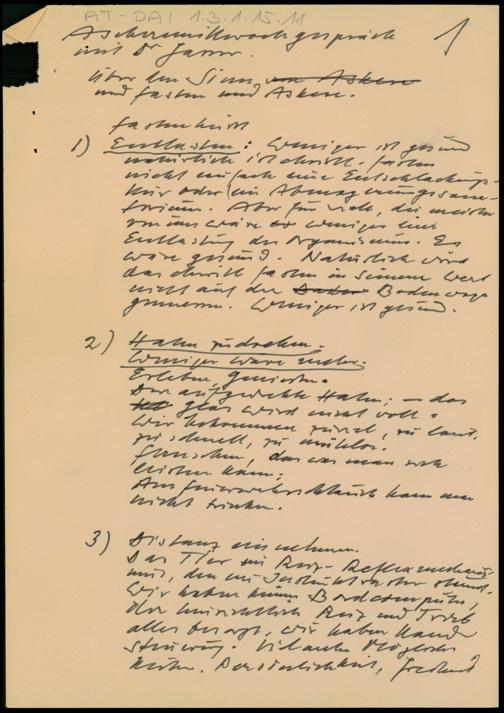 AT-DAI 1.3.1.15.11
1
Aschermittwochgespräch
mit Dr
über den Sinn von Askese
und fasten und Askese.
fasten heißt
1) Entlasten: Weniger ist gesund
natürlich ist christl. fasten
nicht einfach eine Entschlackungs-
kur oder ein Abmagerungssana-
torium. Aber für viele, die meisten
von uns wäre weniger eine
Entlastung des Organismus. Es
wäre gesund. Natürlich wird
das christl fasten in seinem Wert
nicht auf der Bodenwage
gemessen. Weniger ist gesund.
2) Hahn zudrehen.
Weniger wäre mehr.
Erleben, Genießen.
Der aufgedrehte Hahn; – das
Glas wird nicht voll.
Wir bekommen zuviel, zu laut,
zu schnell, zu mühelos.
Genießen, das was man sich
leisten kann;
Am Feuerwehrschlauch kann man
nicht trinken.
3) Distanz einnehmen.
Das Tier ein Reiz-Reflexmechanis-
mus, den ein Instinktraster steuert.
Wir haben keinen Bordcomputer,
der hinsichtlich Reiz und Trieb
alles besorgt, wir haben Hand-
steuerung. Viel mehr Möglich-
keiten. Persönlichkeit, Freiheit